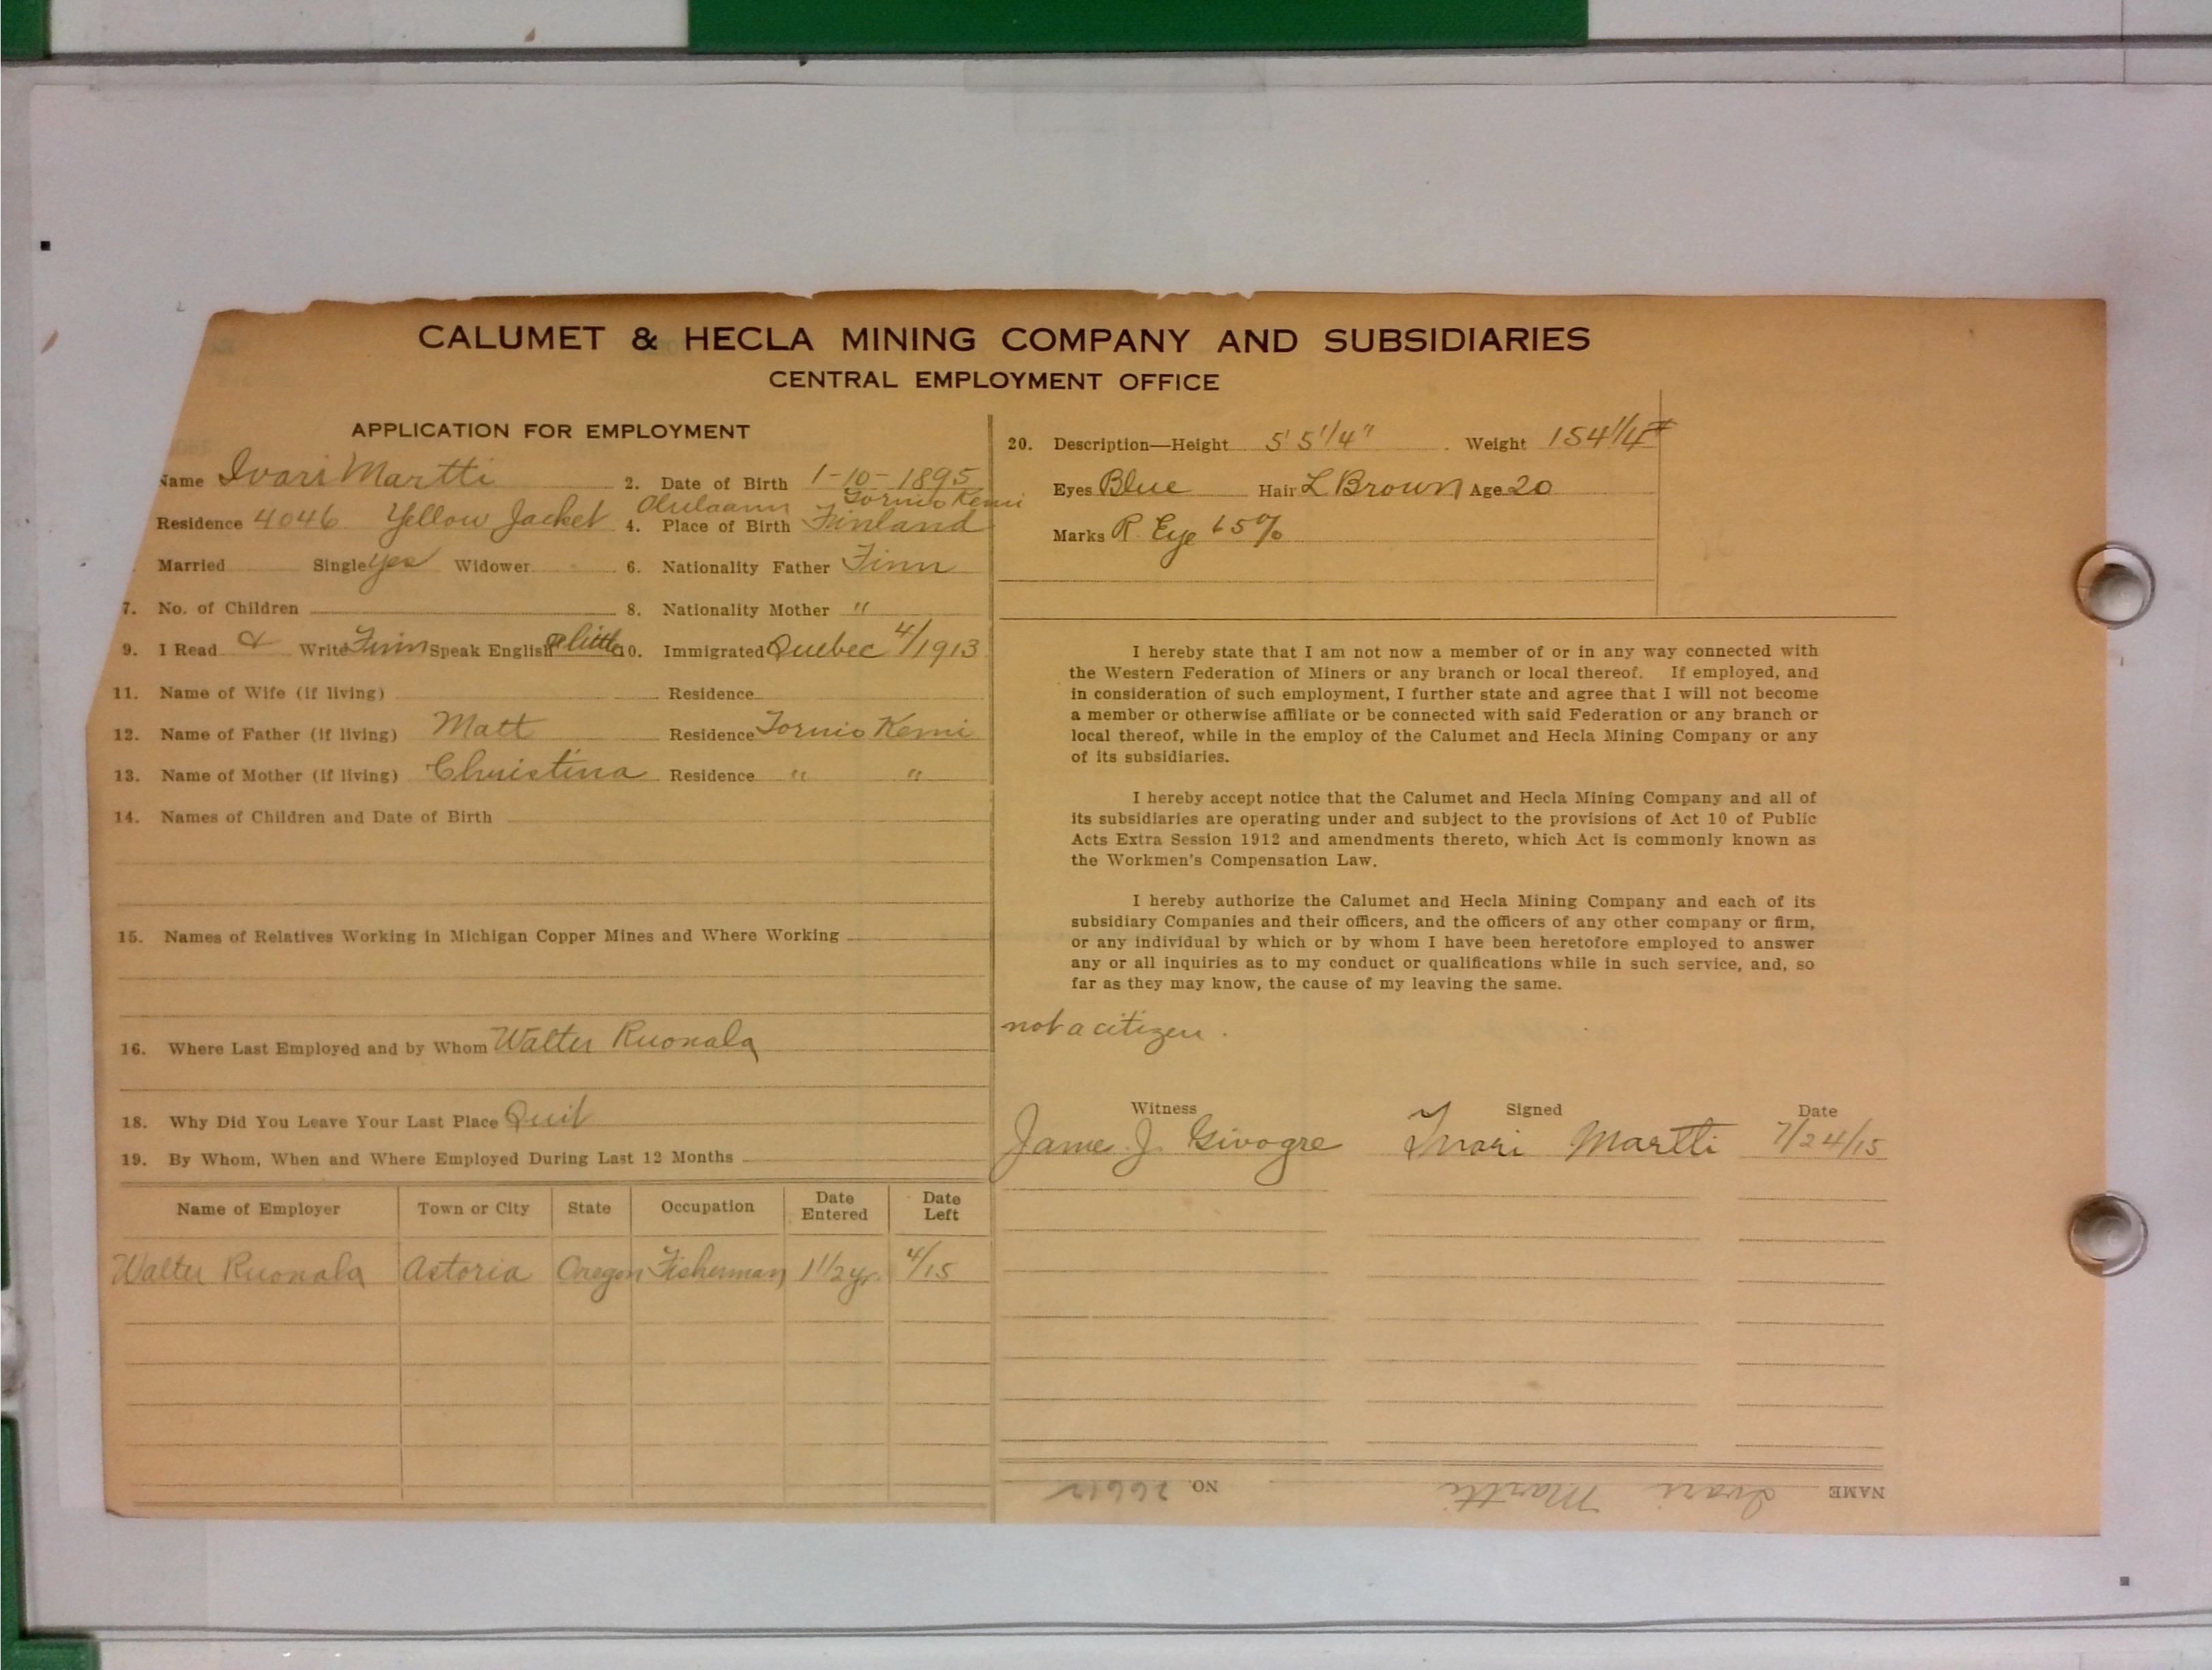 CALUMET & HECLA MINING COMPANY AND SUBSIDIARIES
CENTRAL EMPLOYMENT OFFICE
APPLICATION FOR EMPLOYMENT
Name Ivari Martti 2. Date of Birth 1-10-1895
Tornio Kemi
Residence 4046 Yellow Jacket 4. Place of Birth Finland
Married Single yes Widower 6. Nationality Father Finn
7. No. of Children 8. Nationality Mother "
9. I Read & Write Finn Speak English a little 10. Immigrated Quebec 4/1913
11. Name of Wife (if living) Residence
12. Name of Father (if living) Matt Residence Tornio Kemi
13. Name of Mother (if living) Christina Residence " "
14. Names of Children and Date of Birth
15. Names of Relatives Working in Michigan Copper Mines and Where Working
16. Where Last Employed and by Whom Walter Ruonala
18. Why Did You Leave Your Last Place Quit
19. By Whom, When and Where Employed During Last 12 Months
Name of Employer Town or City State Occupation Date Entered Date Left
Walter Ruonala Astoria Oregon Fisherman 1 1/2 yr. 4/15
20. Description—Height 5' 5 1/4" Weight 154 1/4 #
Eyes Blue Hair L Brown Age 20
Marks R. Eye 65%
I hereby state that I am not now a member of or in any way connected with
the Western Federation of Miners or any branch or local thereof. If employed, and
in consideration of such employment, I further state and agree that I will not become
a member or otherwise affiliate or be connected with said Federation or any branch or
local thereof, while in the employ of the Calumet and Hecla Mining Company or any
of its subsidiaries.
I hereby accept notice that the Calumet and Hecla Mining Company and all of
its subsidiaries are operating under and subject to the provisions of Act 10 of Public
Acts Extra Session 1912 and amendments thereto, which Act is commonly known as
the Workmen's Compensation Law.
I hereby authorize the Calumet and Hecla Mining Company and each of its
subsidiary Companies and their officers, and the officers of any other company or firm,
or any individual by which or by whom I have been heretofore employed to answer
any or all inquiries as to my conduct or qualifications while in such service, and, so
far as they may know, the cause of my leaving the same.
not a citizen.
Witness Signed Date
James J. Givogre Ivari Martti 7/24/15
NAME Ivari Martti NO.